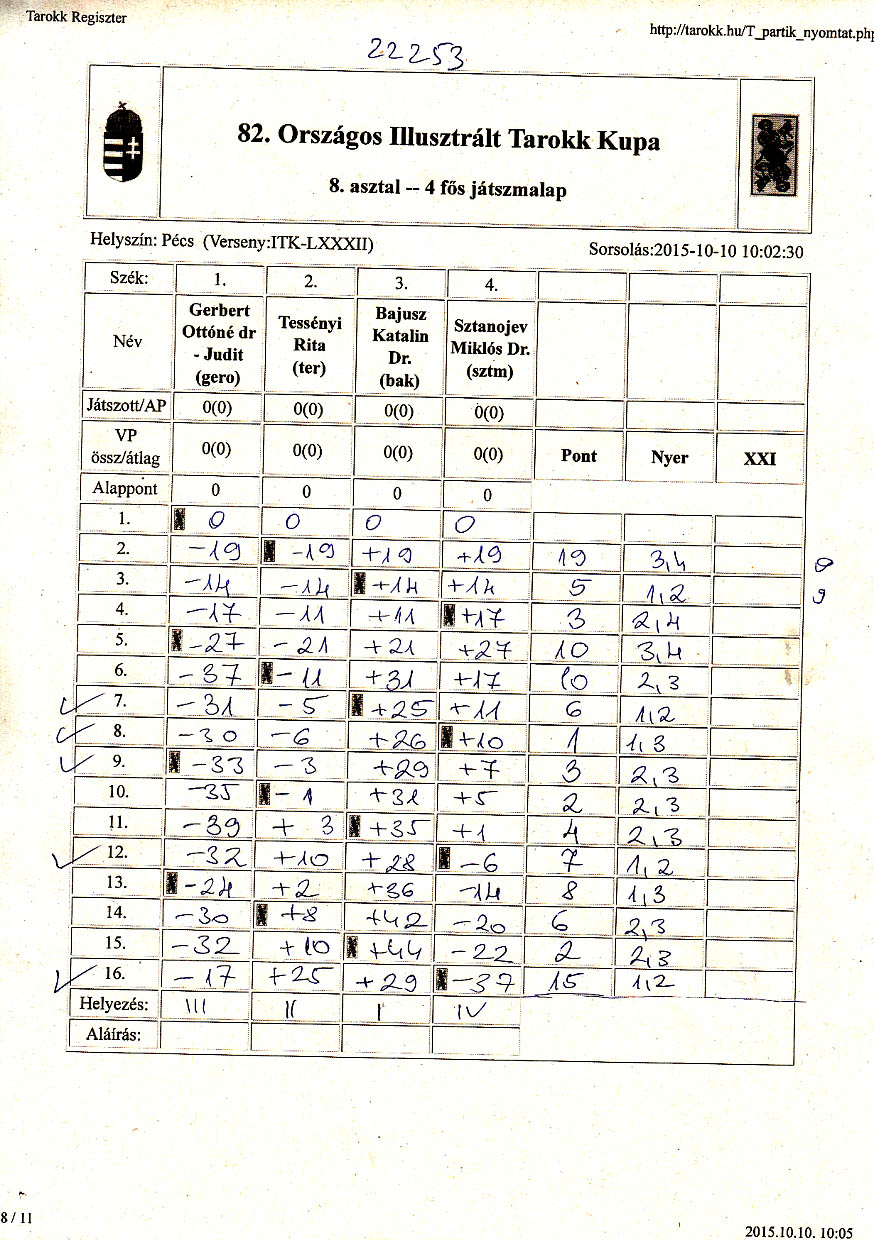 Tarokk Regiszter
http://tarokk.hu/T_partik_nyomtat.php
22253
82. Országos Illusztrált Tarokk Kupa
8. asztal -- 4 fős játszmalap
Helyszín: Pécs (Verseny:ITK-LXXXII) Sorsolás:2015-10-10 10:02:30
Szék: 1. 2. 3. 4.
Név Gerbert Ottóné dr - Judit (gero) Tessényi Rita (ter) Bajusz Katalin Dr. (bak) Sztanojev Miklós Dr. (sztm)
Játszott/AP 0(0) 0(0) 0(0) 0(0)
VP össz/átlag 0(0) 0(0) 0(0) 0(0) Pont Nyer XXI
Alappont 0 0 0 0
1. 0 0 0 0
2. -19 -19 +19 +19 19 3,4
3. -14 -14 +14 +14 5 1,2 9
4. -17 -11 +11 +17 3 2,4
5. -27 -21 +21 +27 10 3,4
6. -37 -11 +31 +17 10 2,3
7. -31 -5 +25 +11 6 1,2
8. -30 -6 +26 +10 1 1,3
9. -33 -3 +29 +7 3 2,3
10. -35 -1 +31 +5 2 2,3
11. -39 +3 +35 +1 4 2,3
12. -32 +10 +28 -6 7 1,2
13. -24 +2 +36 -14 8 1,3
14. -30 +8 +42 -20 6 2,3
15. -32 +10 +44 -22 2 2,3
16. -17 +25 +29 -37 15 1,2
Helyezés: III II I IV
Aláírás:
8 / 11
2015.10.10. 10:05